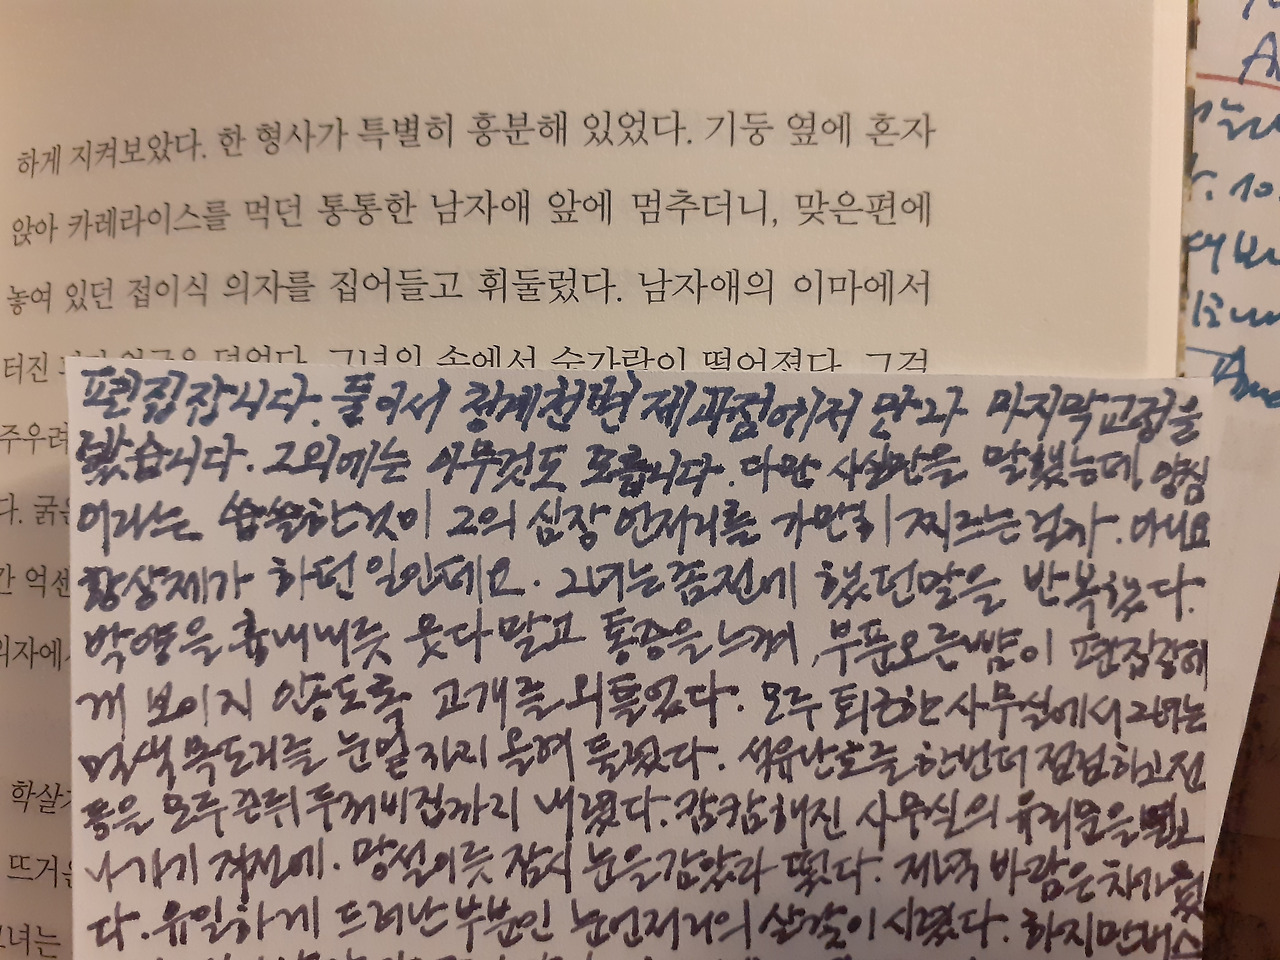 하게 지켜보았다. 한 형사가 특별히 흥분해 있었다. 기둥 옆에 혼자
앉아 카레라이스를 먹던 통통한 남자애 앞에 멈추더니, 맞은편에
놓여 있던 접이식 의자를 집어들고 휘둘렀다. 남자애의 이마에서
터진 그녀의 손에서 숟가락이 떨어졌다. 그걸
주우려
다. 굵은
간 억센
의자에
학살
뜨거운
녀는
편집장입니다. 풀어서 청계천변 제과점에서 만나 마지막 교정을
봤습니다. 그외에는 아무것도 모릅니다. 다만 사실만을 말했는데, 양심
이라는 씁쓸한 것이 그의 심장 언저리를 가만히 찌르는 걸까. 아니요
항상 제가 하던 일인데요. 그녀는 좀전에 했던 말을 반복했다.
박영을 흉내내듯 웃다 말고 통증을 느껴, 부푼 오른뺨이 편집장에
게 보이지 않도록 고개를 외틀었다. 모두 퇴근한 사무실에서 그녀는
먹색 목도리를 눈밑까지 올려 둘렀다. 석유난로를 한번 더 점검하고 전
등을 모두 끈 뒤 두꺼비집까지 내렸다. 캄캄해진 사무실의 유리문을 열고
나가기 직전에. 망설이듯 잠시 눈을 감았다 떴다. 저녁 바람은 차가웠
다. 유일하게 드러난 부분인 눈언저리의 살갗이 시렸다. 하지만 버스